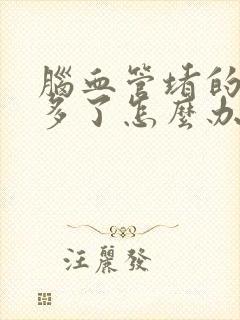 腦血管堵的
多了怎麼办
汪麗發